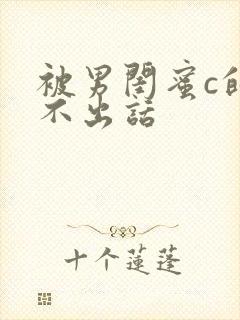 被男閨蜜c的
不出話
十个蓮蓬